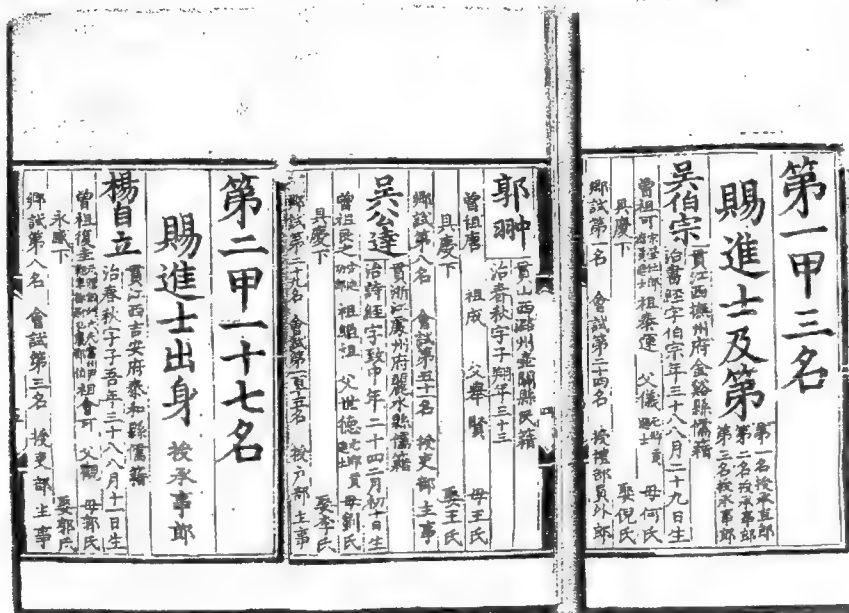 第一甲三名
賜進士及第
第一名授承直郎
第二名授承事郎
第三名授承事郎
吳伯宗
貫江西撫州府金谿縣儒籍
治書經字伯宗年三十八八月二十九日生
曾祖可
祖泰運 父儀 母何氏
具慶下 娶倪氏
鄉試第一名 會試第二十四名 授禮部員外郎
郭翀
貫山西潞州壺關縣民籍
治春秋字子翔年三十三
曾祖唐 祖成 父舉賢 母王氏
具慶下 娶王氏
鄉試第八名 會試第五十一名 授吏部主事
吳公達
貫浙江處州府麗水縣儒籍
治詩經字致中年二十四二月初十日生
祖繼祖 父世德 母劉氏
具慶下 娶李氏
鄉試第二十九名 會試第一百五名 授戶部主事
第二甲一十七名
賜進士出身 授承事郎
楊自立
貫江西吉安府泰和縣儒籍
治春秋字子吾年三十八八月十一日生
曾祖復圭
祖會可 父觀 母郭氏
永感下 娶郭氏
鄉試第八名 會試第三名 授吏部主事